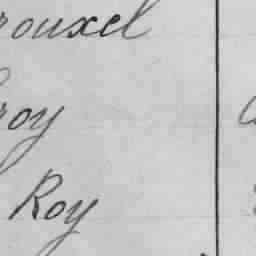 rouxel
roy
Roy